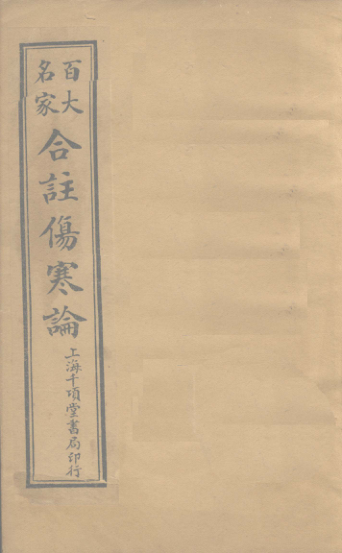 百大
名家
合註傷寒論
上海千頃堂書局印行